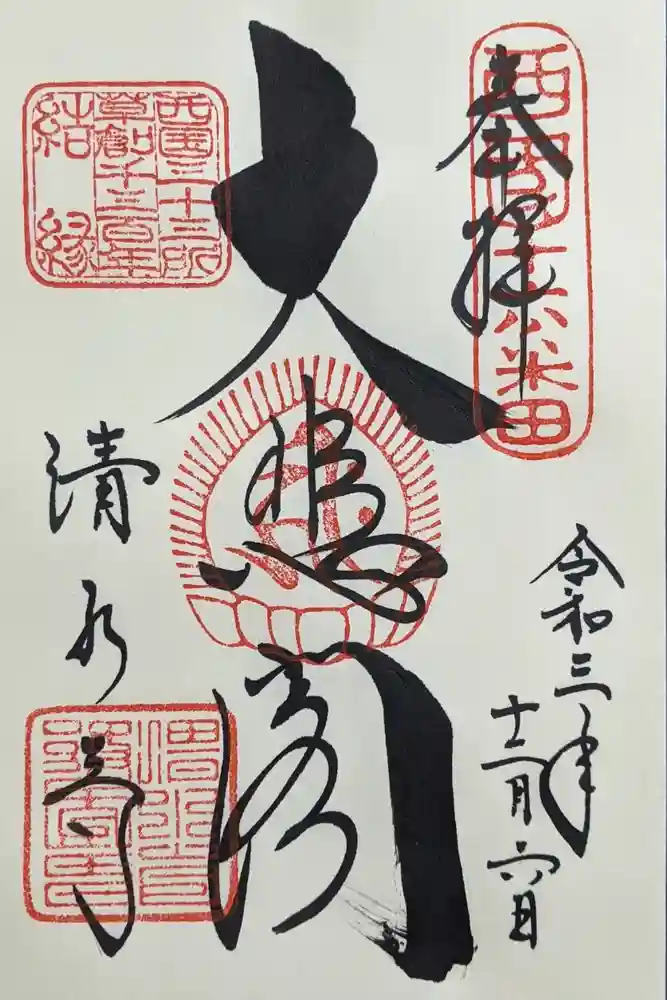 奉拝
西國十六番
令和三年
十二月六日
大悲閣
西国三十三所
草創千三百年
結縁
清水寺